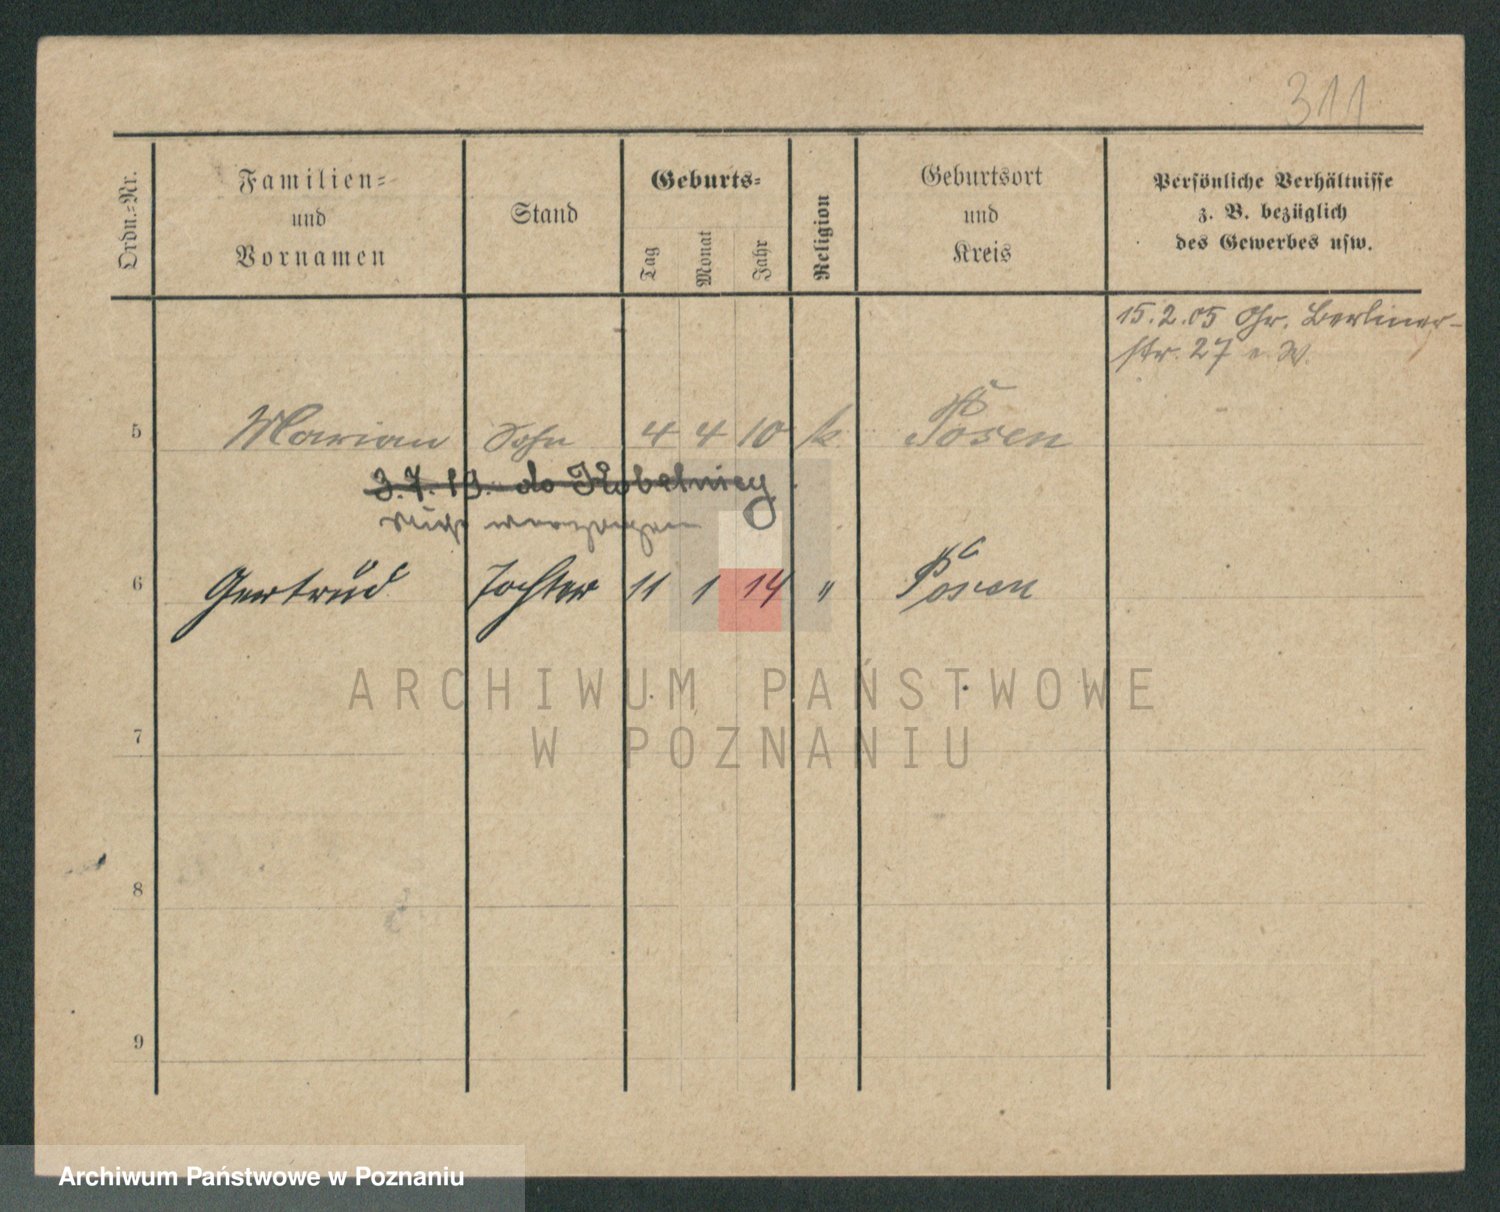 311
Ordn.=Nr.
Familien=
und
Vornamen
Stand
Geburts=
Tag
Monat
Jahr
Religion
Geburtsort
und
Kreis
Persönliche Verhältnisse
z. B. bezüglich
des Gewerbes usw.
15.2.05 Gr. Berliner-
str. 27 e. W.
5 Marian Sohn 4 4 10 k. Posen
3.7.19. do Kobelnicy
nicht verzogen
6 Gertrud Tochter 11 1 14 " Posen
7
8
9
ARCHIWUM PAŃSTWOWE
W POZNANIU
Archiwum Państwowe w Poznaniu